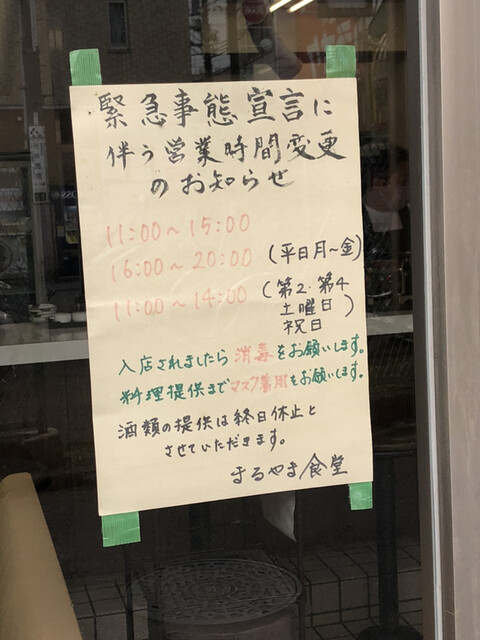 緊急事態宣言に
伴う営業時間変更
のお知らせ
11:00～15:00
16:00～20:00 (平日月～金)
11:00～14:00 (第2.第4
土曜日
祝日)
入店されましたら消毒をお願いします。
料理提供までマスク着用をお願いします。
酒類の提供は終日休止と
させていただきます。
まるやま食堂